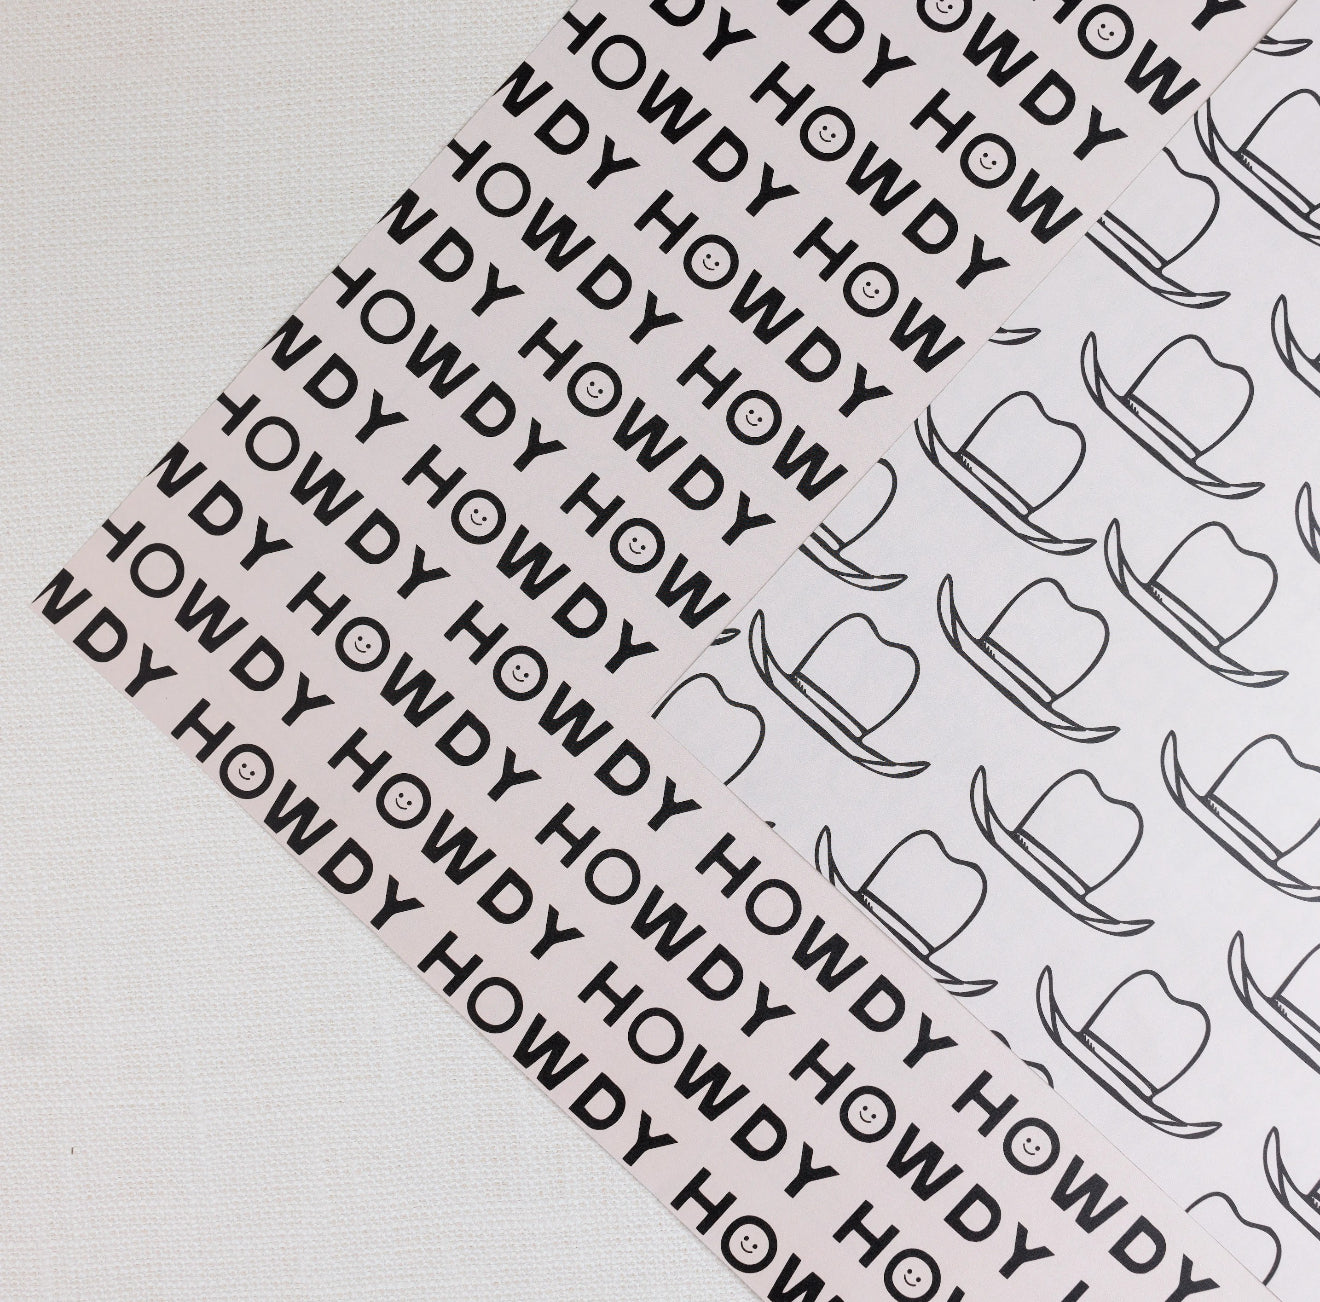 Y
HOW
OWDY
WDY HOW
DY HOWDY
HOWDY HOW
WDY HOWDY
HOWDY HOW
WDY HOWDY
HOWDY HOW
WDY HOWDY
HOWDY HOWDY HOWDY HOWDY
WDY HOWDY HOWDY HOWDY
HOWDY HOWDY HOWDY HO
WDY HOWDY HOWDY HOW